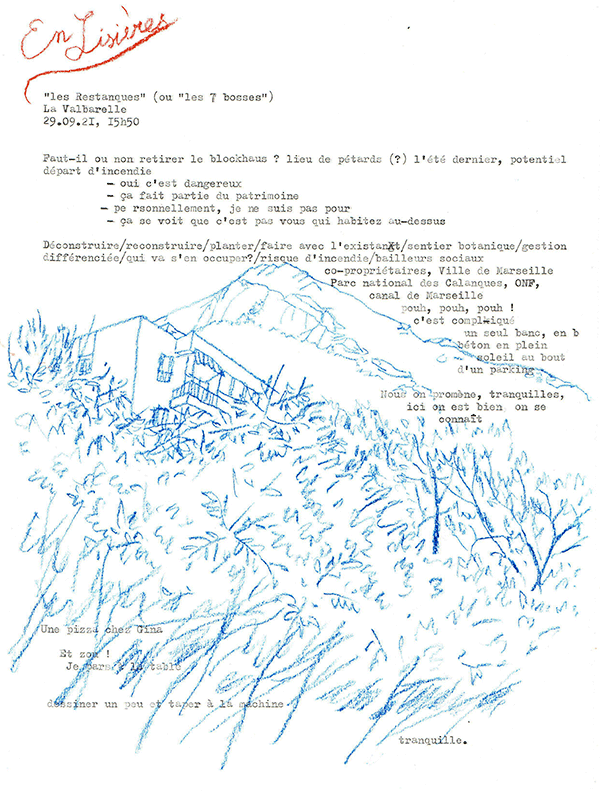 En Lisières
"les Restanques" (ou "les 7 bosses")
La Valbarelle
29.09.21, 15h50
Faut-il ou non retirer le blockhaus ? lieu de pétards (?) l'été dernier, potentiel
départ d'incendie
- oui c'est dangereux
- ça fait partie du patrimoine
- pe rsonnellement, je ne suis pas pour
- ça se voit que c'est pas vous qui habitez au-dessus
Déconstruire/reconstruire/planter/faire avec l'existant/sentier botanique/gestion
différenciée/qui va s'en occuper?/risque d'incendie/bailleurs sociaux
co-propriétaires, Ville de Marseille
Parc national des Calanques, ONF,
canal de Marseille
pouh, pouh, pouh !
c'est compliqué
un seul banc, en b
béton en plein
soleil au bout
d'un parking
Nous on promène, tranquilles,
ici on est bien, on se
connaît
Une pizza chez Gina
Et zou !
Je pars à la table
dessiner un peu et taper à la machine
tranquille.